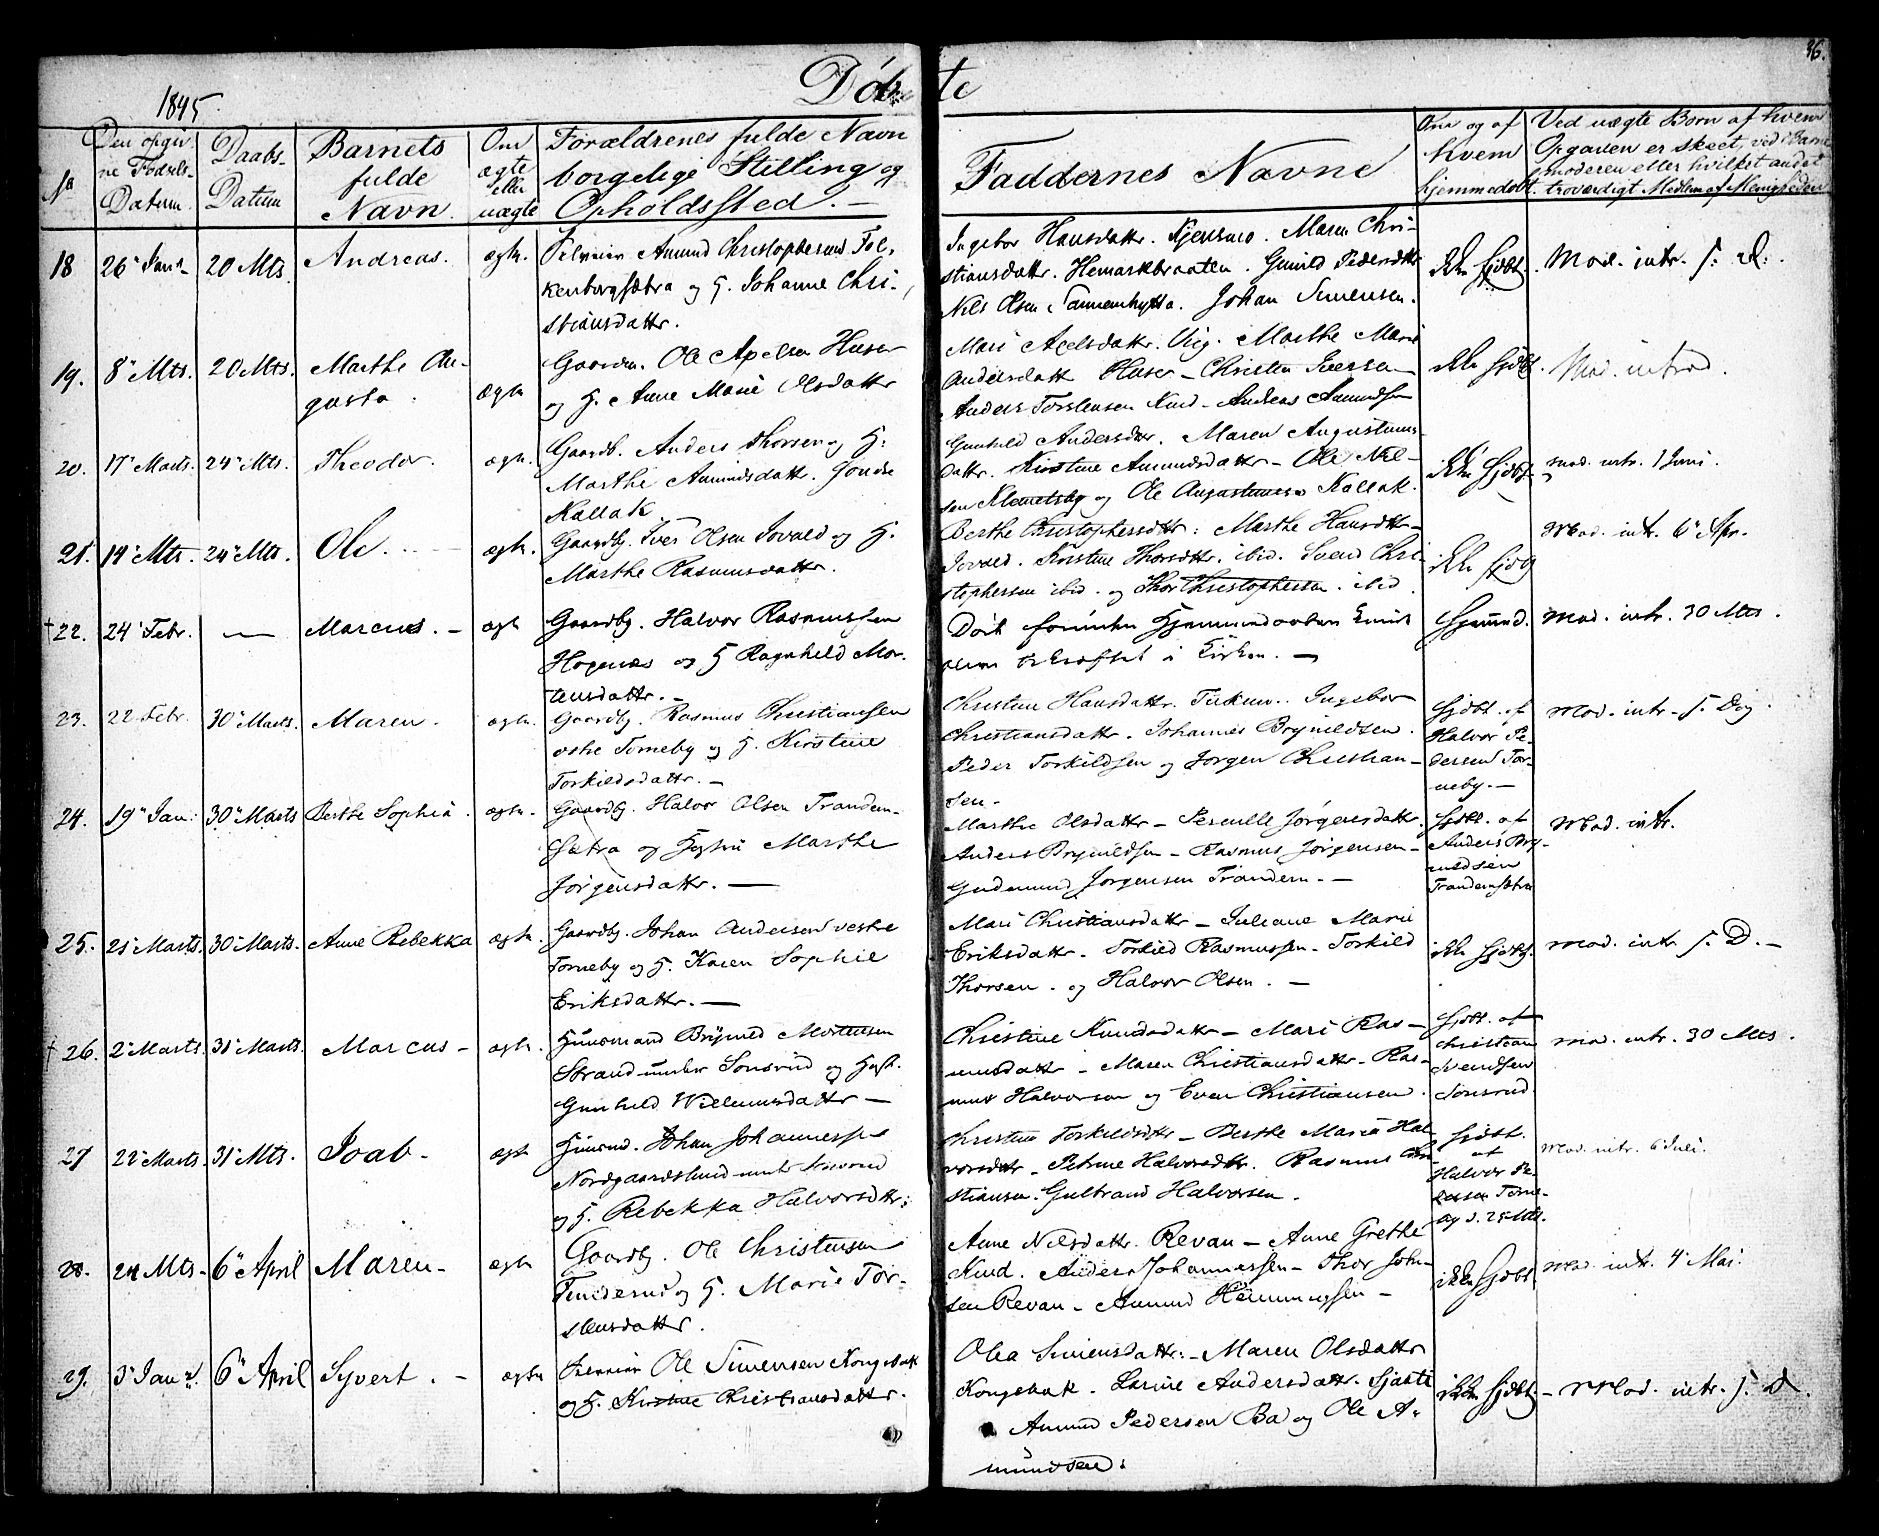 36.
1845.
Døbte
No
Den opgiv
ne Fødsels-
Datum.
Daabs-
Datum
Barnets
fulde
Navn.
Om
ægte
eller
uægte
Forældrenes fulde Navn
borgelige Stilling og
Opholdssted. —
Faddernes Navne
Om og af
hvem
hjemmedøbt.
Ved uægte Børn af hvem
Opgaven er skeet, ved Barne
moderen eller hvilket andet
troværdigt Medlem af Menigheden
18 26" Janr 20 Mts. Andreas. ægte.
Amund Christophersens Fol-
kenborgsætra og H. Johanne Chri-
stiansdattr.
Ingebor Hansdattr. . Maren Chri-
stiansdattr. Hemarkbraaten. Gunild Pedersdttr
Nils Olsen Tannemhytta. Johan Simensen.
ikke hjdbt. Mod. intr. s. D.
19. 8" Mts. 20 Mts. Marthe Au-
gusta. ægte
Gaardm. Ole Apelsen Huser
og H. Anne Marie Olsdattr
Mari Apelsdattr. Vig. Marthe Marie
Andersdatt Huser – Christen Iversen
Anders Torstensen Kind – Andreas Amundsen
ikke hjdbt. Mod. introd.
20. 17" Marts. 24" Mts. Theodor. ægte.
Gaardb. Anders Thorsen og H.
Marthe Amundsdattr. Søndre
Kallak.
Gunhild Andersdtr. Maren Augustinus-
dattr. Kirstine Amundsdattr – Ole Niel-
sen Klemetsby og Ole Augustinusen Kallak.
ikke hjdbt. Mod. intr. 1 Juni.
21. 14" Mts. 24" Mts. Ole. ægte.
Gaardbg. Iver Olsen Sovald og H.
Marthe Rasmusdattr.
Berthe Christophersdttr: Marthe Hansdttr
Sovald. Kirstine Thorsdttr. ibid. Svend Chri-
stophersen ibid. og Thor Christophersen. ibid.
ikke hjdb Mod. intr. 6" Apr.
† 22. 24" Febr. — Marcus. — ægte
Gaardbg. Halvor Rasmussen
Hogenæs og H Ragnhild Mor-
tensdattr. —
i Kirken. —
Hjemmed. Mod. intr. 30 Mts.
23. 22 Febr. 30" Marts. Maren. ægte.
Gaardbg. Rasmus Christiansen
østre Torneby og H. Kirstine
Torkildsdattr. —
Christine Hansdattr. . Ingebor
Christiansdattr. Johannes Brynildsen.
Peder Torkildsen og Jørgen Christian-
sen.
hjdbt. af
Halvor Pe-
dersen Tor-
neby. —
Mod. intr. s. Dag.
24. 19" Jan: 30" Marts Berthe Sophia. ægte.
Gaardbg. Halvor Olsen Trandem-
Sætra og Hustru Marthe
Jørgensdattr. —
Marthe Olsdattr – Pernille Jørgensdattr.
Anders Brynildsen – Rasmus Jørgensen –
Gudmund Jørgensen Trandem. —
hjdbt. af
Anders Bry-
nildsen
Trandemsætra
Mod. intr.
25. 21" Marts. 30" Marts. Anne Rebekka ægte.
Gaardbg. Johan Andersen vestre
Torneby og H. Karen Sophie
Eriksdattr. —
Mari Christiansdattr – Juliane Marie
Eriksdattr – Torkild Rasmussen – Torkild
Thorsen. og Halvor Olsen. —
ikke hjdbt. Mod. intr s. D. –
† 26. 2" Marts. 31" Marts. Marcus – ægte.
Huusmand Brynild Mortensen
Strand under Sonsrud og Hust.
Gunhild Willumsdattr —
Christine Knudsdattr – Mari Ras-
musdattr – Maren Christiansdattr – Ras-
mus Halvorsen og Even Christiansen.
hjdbt. af
Christian
Svendsen
Sonsrud.
Mod. intr. 30 Mts.
27 22" Marts. 31" Mts. Joab – ægte
Huusmd. Johan Johannessen
Nordgaardslund under
og H. Rebekka Halvorsdttr:
Christine Torkildsdttr – Berthe Marie Hal-
vorsdttr – Petrine Halvorsdttr. Rasmus Chri-
stiansen. Gulbrand Halvorsen.
hjdbt.
af
Halvor Pe-
dersen Torne-
by d. 25 Mts.
Mod. intr. 6" Juli.
28. 24 Mts – 6" April Maren – ægte
Gaardbg. Ole Christensen
og H. Marie Tor-
stensdattr.
Anne Nilsdattr. Revan – Anne Grethe
Kind. Anders Johannessen – Thor John-
sen Revan – Amund Hemmingsen –
ikke hjdbt. Mod. intr. 4" Mai.
29. 3" Janr. 6" April Syvert. – ægte
Ole Simensen Kongsbak
og H. Kirstine Christiansdattr.
Olea Simensdattr: – Maren Olsdattr
Kongsbak. Larine Andersdattr.
Amund Pedersen Ba og Ole A-
mundsen.
ikke hjdbt. – Mod. intr. s. D.